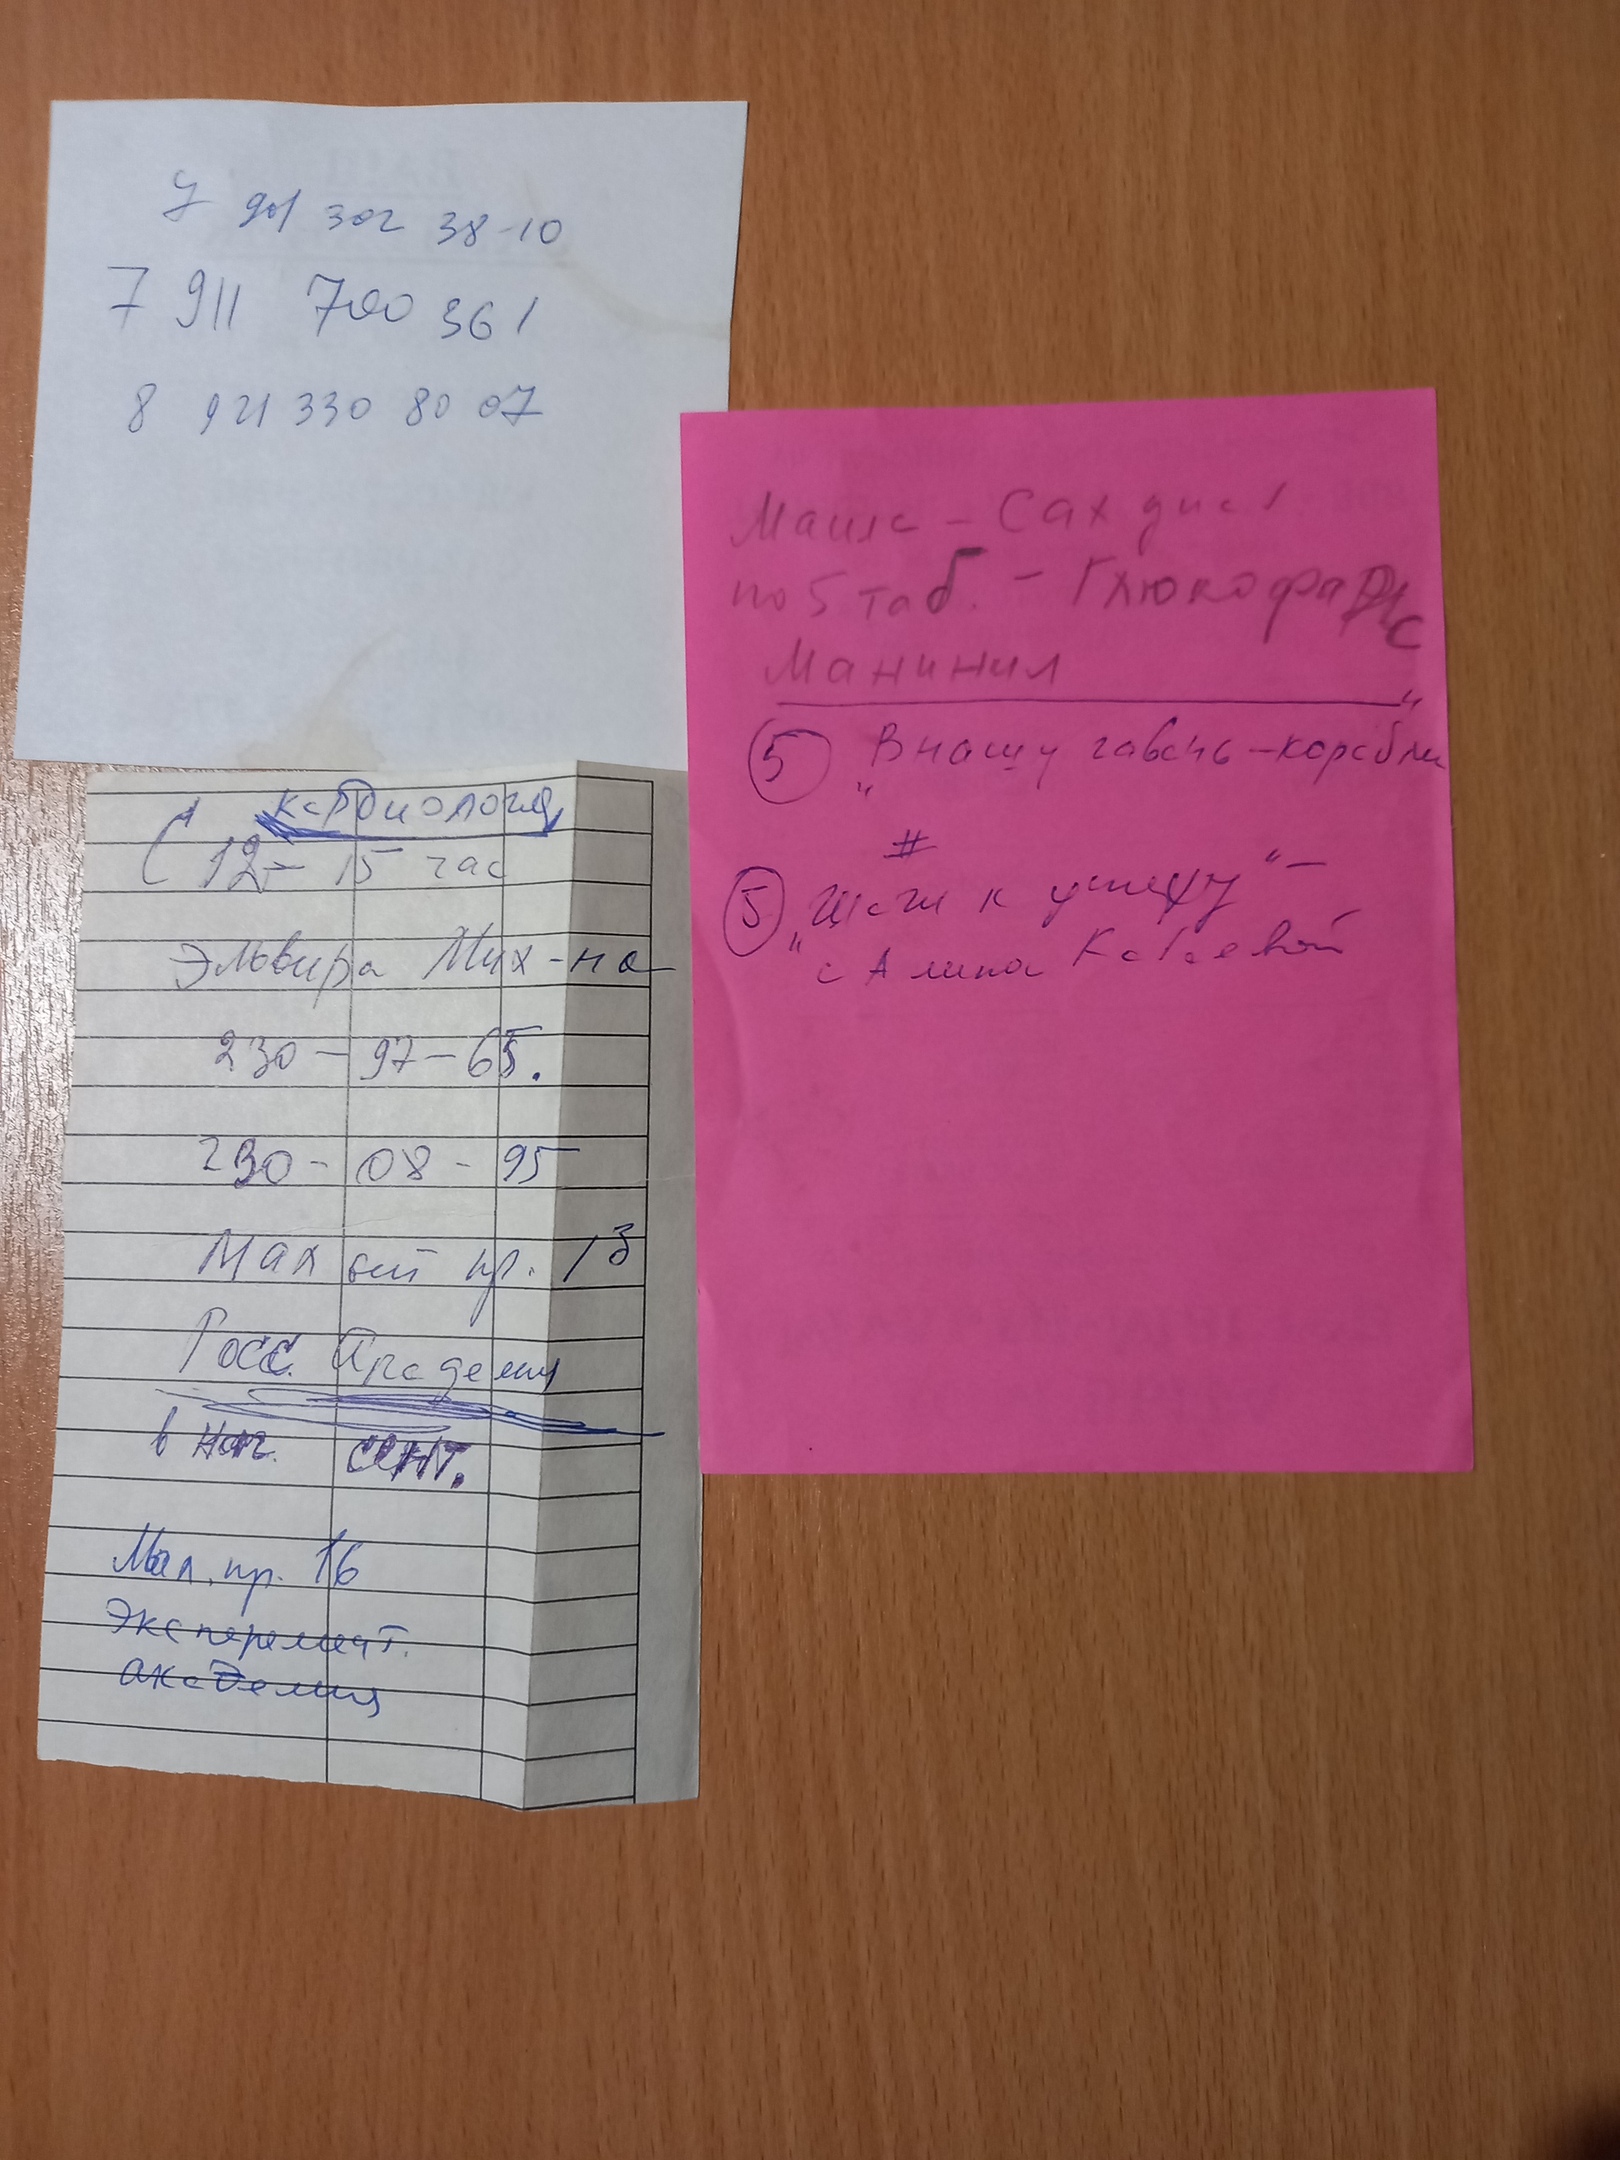 7 901 302 38-10
7 911 700 361
8 921 330 80 07
кардиология
С 12- 15 час
Эльвира Мих-на
230-97-65.
230-08-95
пр. 13
Росс. Академия
в нач. сент.
Мал. пр. 16
Эксперемент.
академия
- Сах диа
по 5 таб. - Глюкофаж
Манинил
5 "В нашу гавань-корабли"
#
5 "Шаги к успеху" -
с Алина Кабаевой